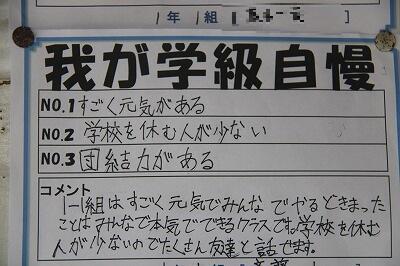 1年 1組 [ ]
我が学級自慢
NO.1 すごく元気がある
NO.2 学校を休む人が少ない
NO.3 団結力がある
コメント
1-1組はすごく元気でみんなでやるときまった
ことはみんなで本気でできるクラスです。学校を休む
人が少ないのでたくさん友達と話せます。